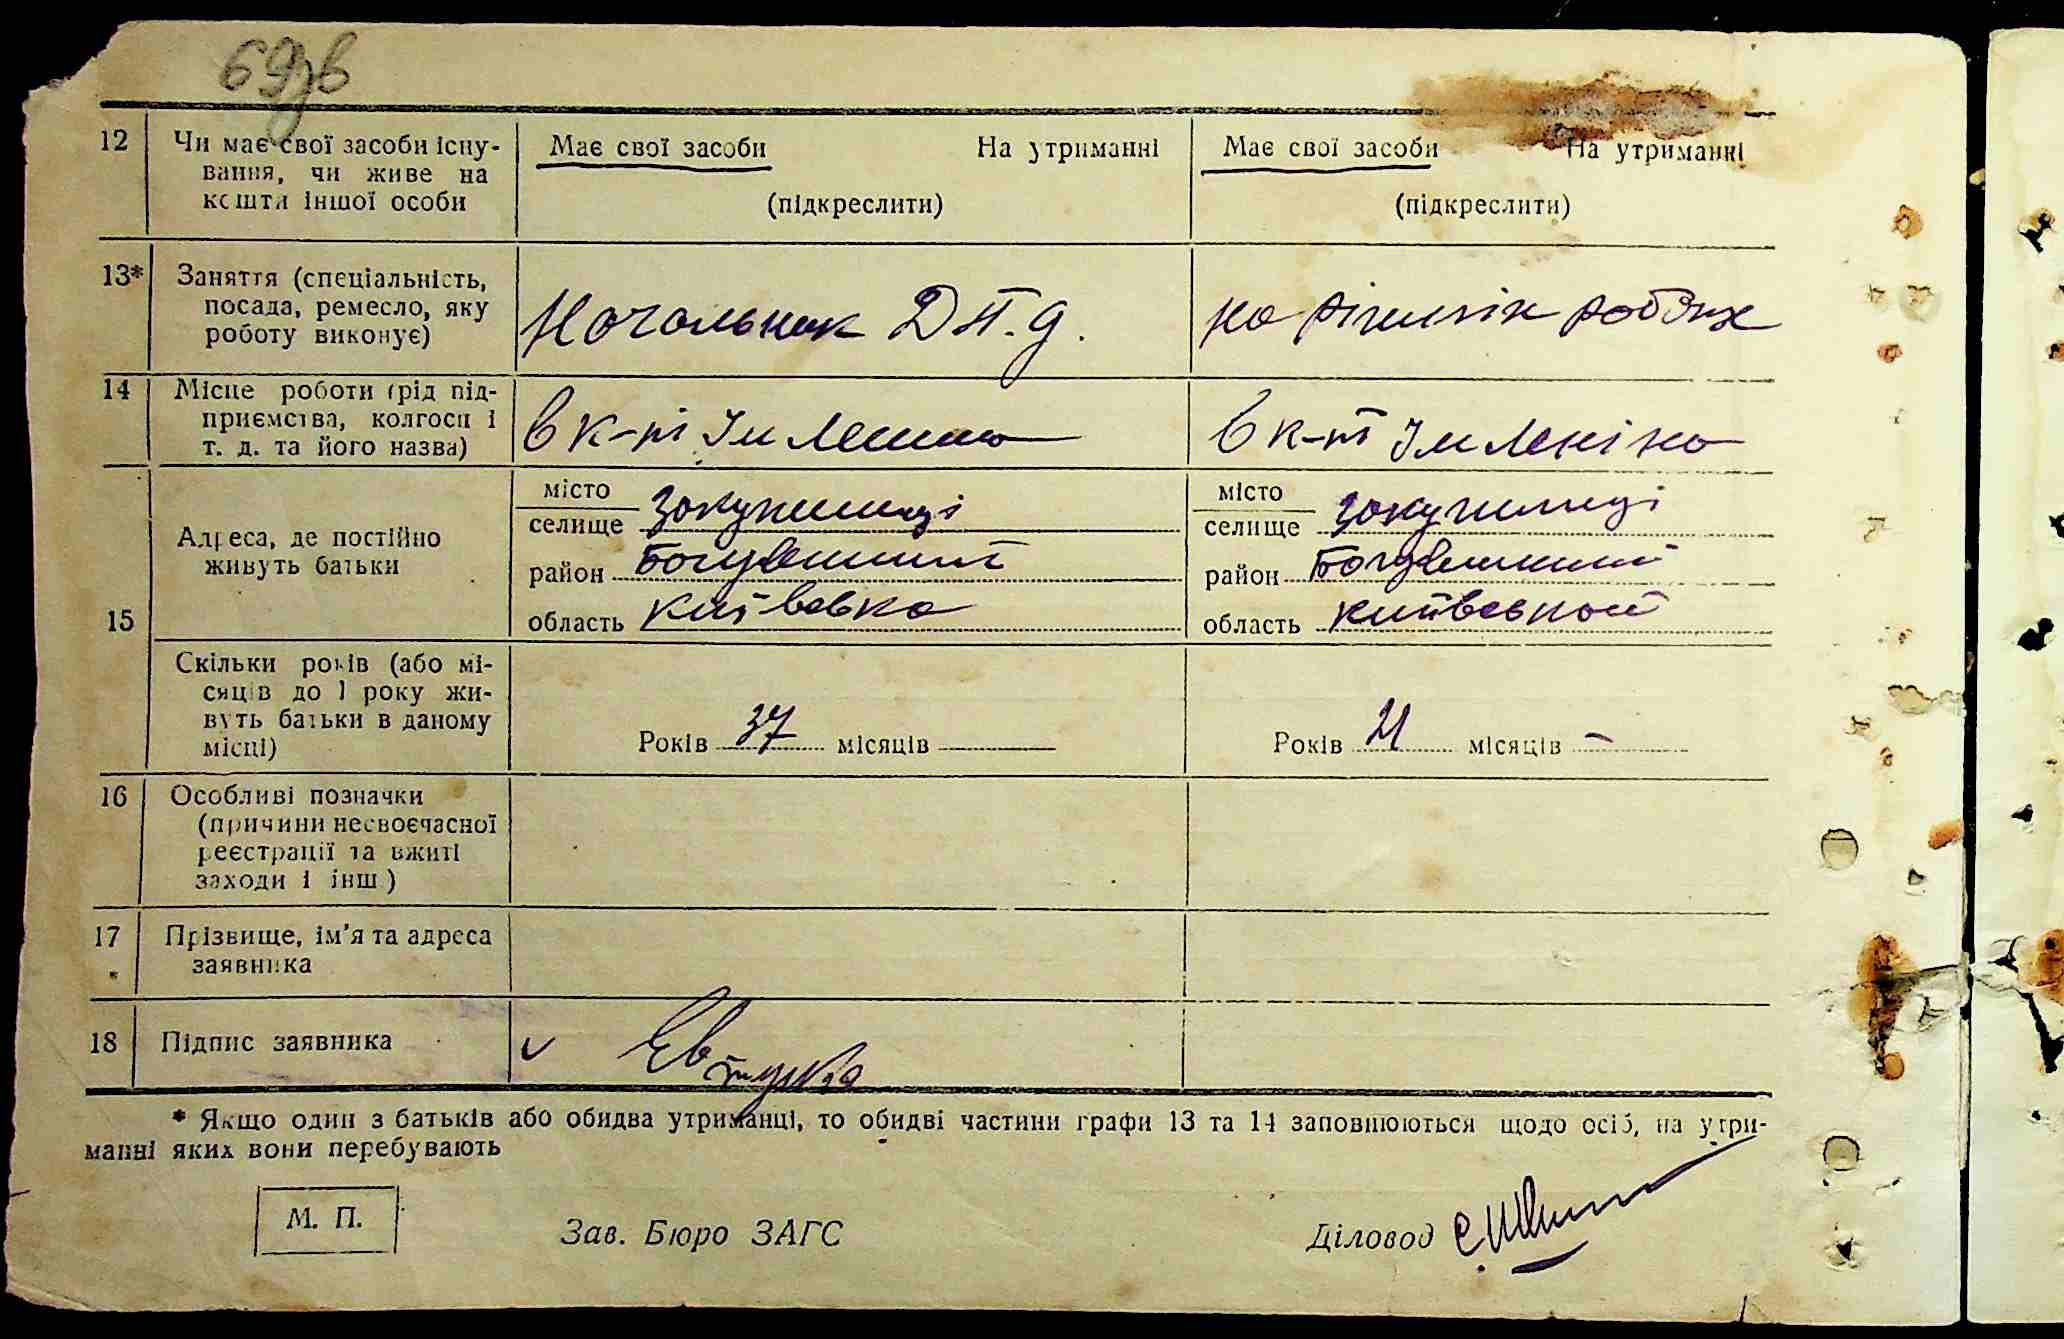 69зв
12 Чи має свої засоби існу- Має свої засоби На утриманні Має свої засоби На утриманні
вання, чи живе на
кошти іншої особи (підкреслити) (підкреслити)
13* Заняття (спеціальність,
посада, ремесло, яку Начальник на різних роботах
роботу виконує)
14 Місце роботи (рід під-
приємства, колгосп і в к-пі Ім Леніна в к-пі Ім Леніна
т. д. та його назва)
місто місто
селище Закутинці селище Закутинці
Адреса, де постійно
живуть батьки район район
15 область Київська область Київської
Скільки років (або мі-
сяців до 1 року жи-
вуть батьки в даному
місці) Років 37 місяців Років 21 місяців –
16 Особливі позначки
(причини несвоєчасної
реєстрації та вжиті
заходи і інш.)
17 Прізвище, ім'я та адреса
заявника
18 Підпис заявника v
* Якщо один з батьків або обидва утриманці, то обидві частини графи 13 та 14 заповнюються щодо осіб, на утри-
манні яких вони перебувають
М. П.
Зав. Бюро ЗАГС Діловод